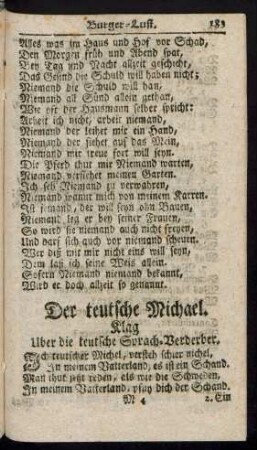 Burger-Lust. 183
Alles was im Haus und Hof vor Schad,
Den Morgen früh und Abend spat,
Den Tag und Nacht allzeit geschicht,
Das Gesind die Schuld will haben nicht;
Niemand die Schuld will han,
Niemand all Sünd allein gethan,
Wie oft der Hausmann selber spricht:
Arbeit ich nicht, arbeit niemand,
Niemand der leihet mir ein Hand,
Niemand der siehet auf das Mein,
Niemand mir treue fort will seyn.
Die Pferd thut mir Niemand warten,
Niemand versiehet meinen Garten.
Ich seh Niemand zu verwahren,
Niemand mit mich von meinem Karren.
Ist jemand, der will seyn ohn Bauen,
Niemand leg er bey seiner Frauen,
So wird sie niemand auch nicht freyen,
Und darf sich auch vor niemand scheuen.
Wer diß mit mir nicht eins will seyn,
Dem laß ich seine Weis allein.
Sofern Niemand niemand bekannt,
Wird er doch allzeit so genannt.
Der teutsche Michael.
Klag
Uber die teutsche Sprach-Verderber.
Ich teutscher Michel, versteh schier nichel,
In meinem Vatterland, es ist ein Schand.
Man thut jetzt reden, als wie die Schweden,
In meinem Vatterland, pfuy dich der Schand.
M 4 2. Ein